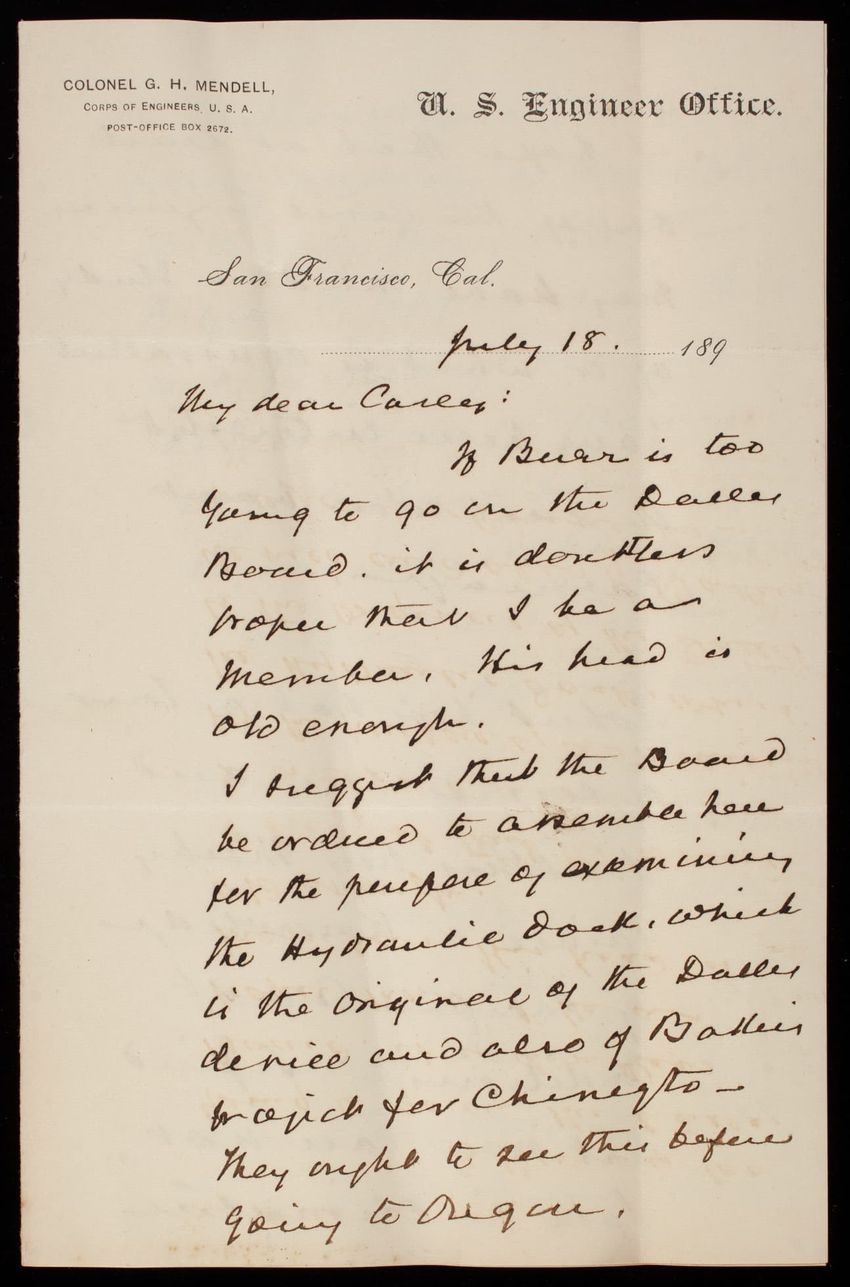 COLONEL G. H. MENDELL,
CORPS OF ENGINEERS, U. S. A.
POST-OFFICE BOX 2672.
U. S. Engineer Office.
San Francisco, Cal.
July 18. 189
My dear Casey:
If is too
young to go on the Dalles
Board. it is doubtless
proper that I be a
member. His head is
old enough.
I suggest that the Board
be ordered to assemble here
for the purpose of examining
the Hydraulic Dock, which
is the original of the Dalles
device and also of
project for
They ought to see this before
going to Oregon.